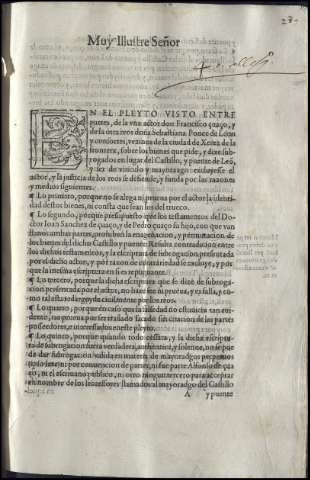 23
Muy Illustre Señor
EN EL PLEYTO VISTO ENTRE
partes, de la vna actor don Francisco çuaço, y
de la otra reos doña Sebastiana Ponce de Leon
y consortes, vezinos de la ciudad de Xerez de la
frontera, sobre los bienes que pide, y dize sub
rogados en lugar del Castillo, y puente de Leõ,
y ser de vinculo y mayorazgo: excluyese el
actor, y la justicia de los reos se defiende, y funda por las razones
y medios siguientes.
Lo primero, porque no se alega ni prueua por el actor la identi
dad destos bienes, ni consta que sean los del trueco.
Lo segundo, porque presupuesto que los testamentos del Do-
ctor Ioan Sanchez de çuaço, y de Pedro çuaço su hijo, con que van
llanos ambas partes, prohiben la enagenacion, y permutacion de
los bienes del dicho Castillo y puente: Resulta contradicion entre
los dichos testamentos, y la escriptura de subrogacion, presentada
por el dicho actor, y por razon de contrariedad se excluye, y por
que la mesma escriptura en si es repugnante.
Lo tercero, porque la dicha escriptura que se dize de subroga-
cion presentada por el dicho actor, no està autorizada, y es falsa, y
como tal falsa redarguyda ciuilmente por los reos.
Lo quarto, porque en caso que la falsedad no estuuiera tan eui-
dente, no prueua por ser traslado sacado sin citacion de las partes
posseedores, e interessados en este pleyto.
Lo quinto, porque quando todo cessara, y la dicha escriptu-
ra de subrogacion fuera verdadera, authentica, y solenne, no se pue
de dar subrogacion valida en materia de mayorazgos perpetuos
ipso iure, ni por conuencion de partes, ni fue parte Alonso de çua
ço, ni el escriuano publico, ni otro ninguno tercero para aceptar
en nombre de los successores llamados al mayorazgo del Castillo
A y puente